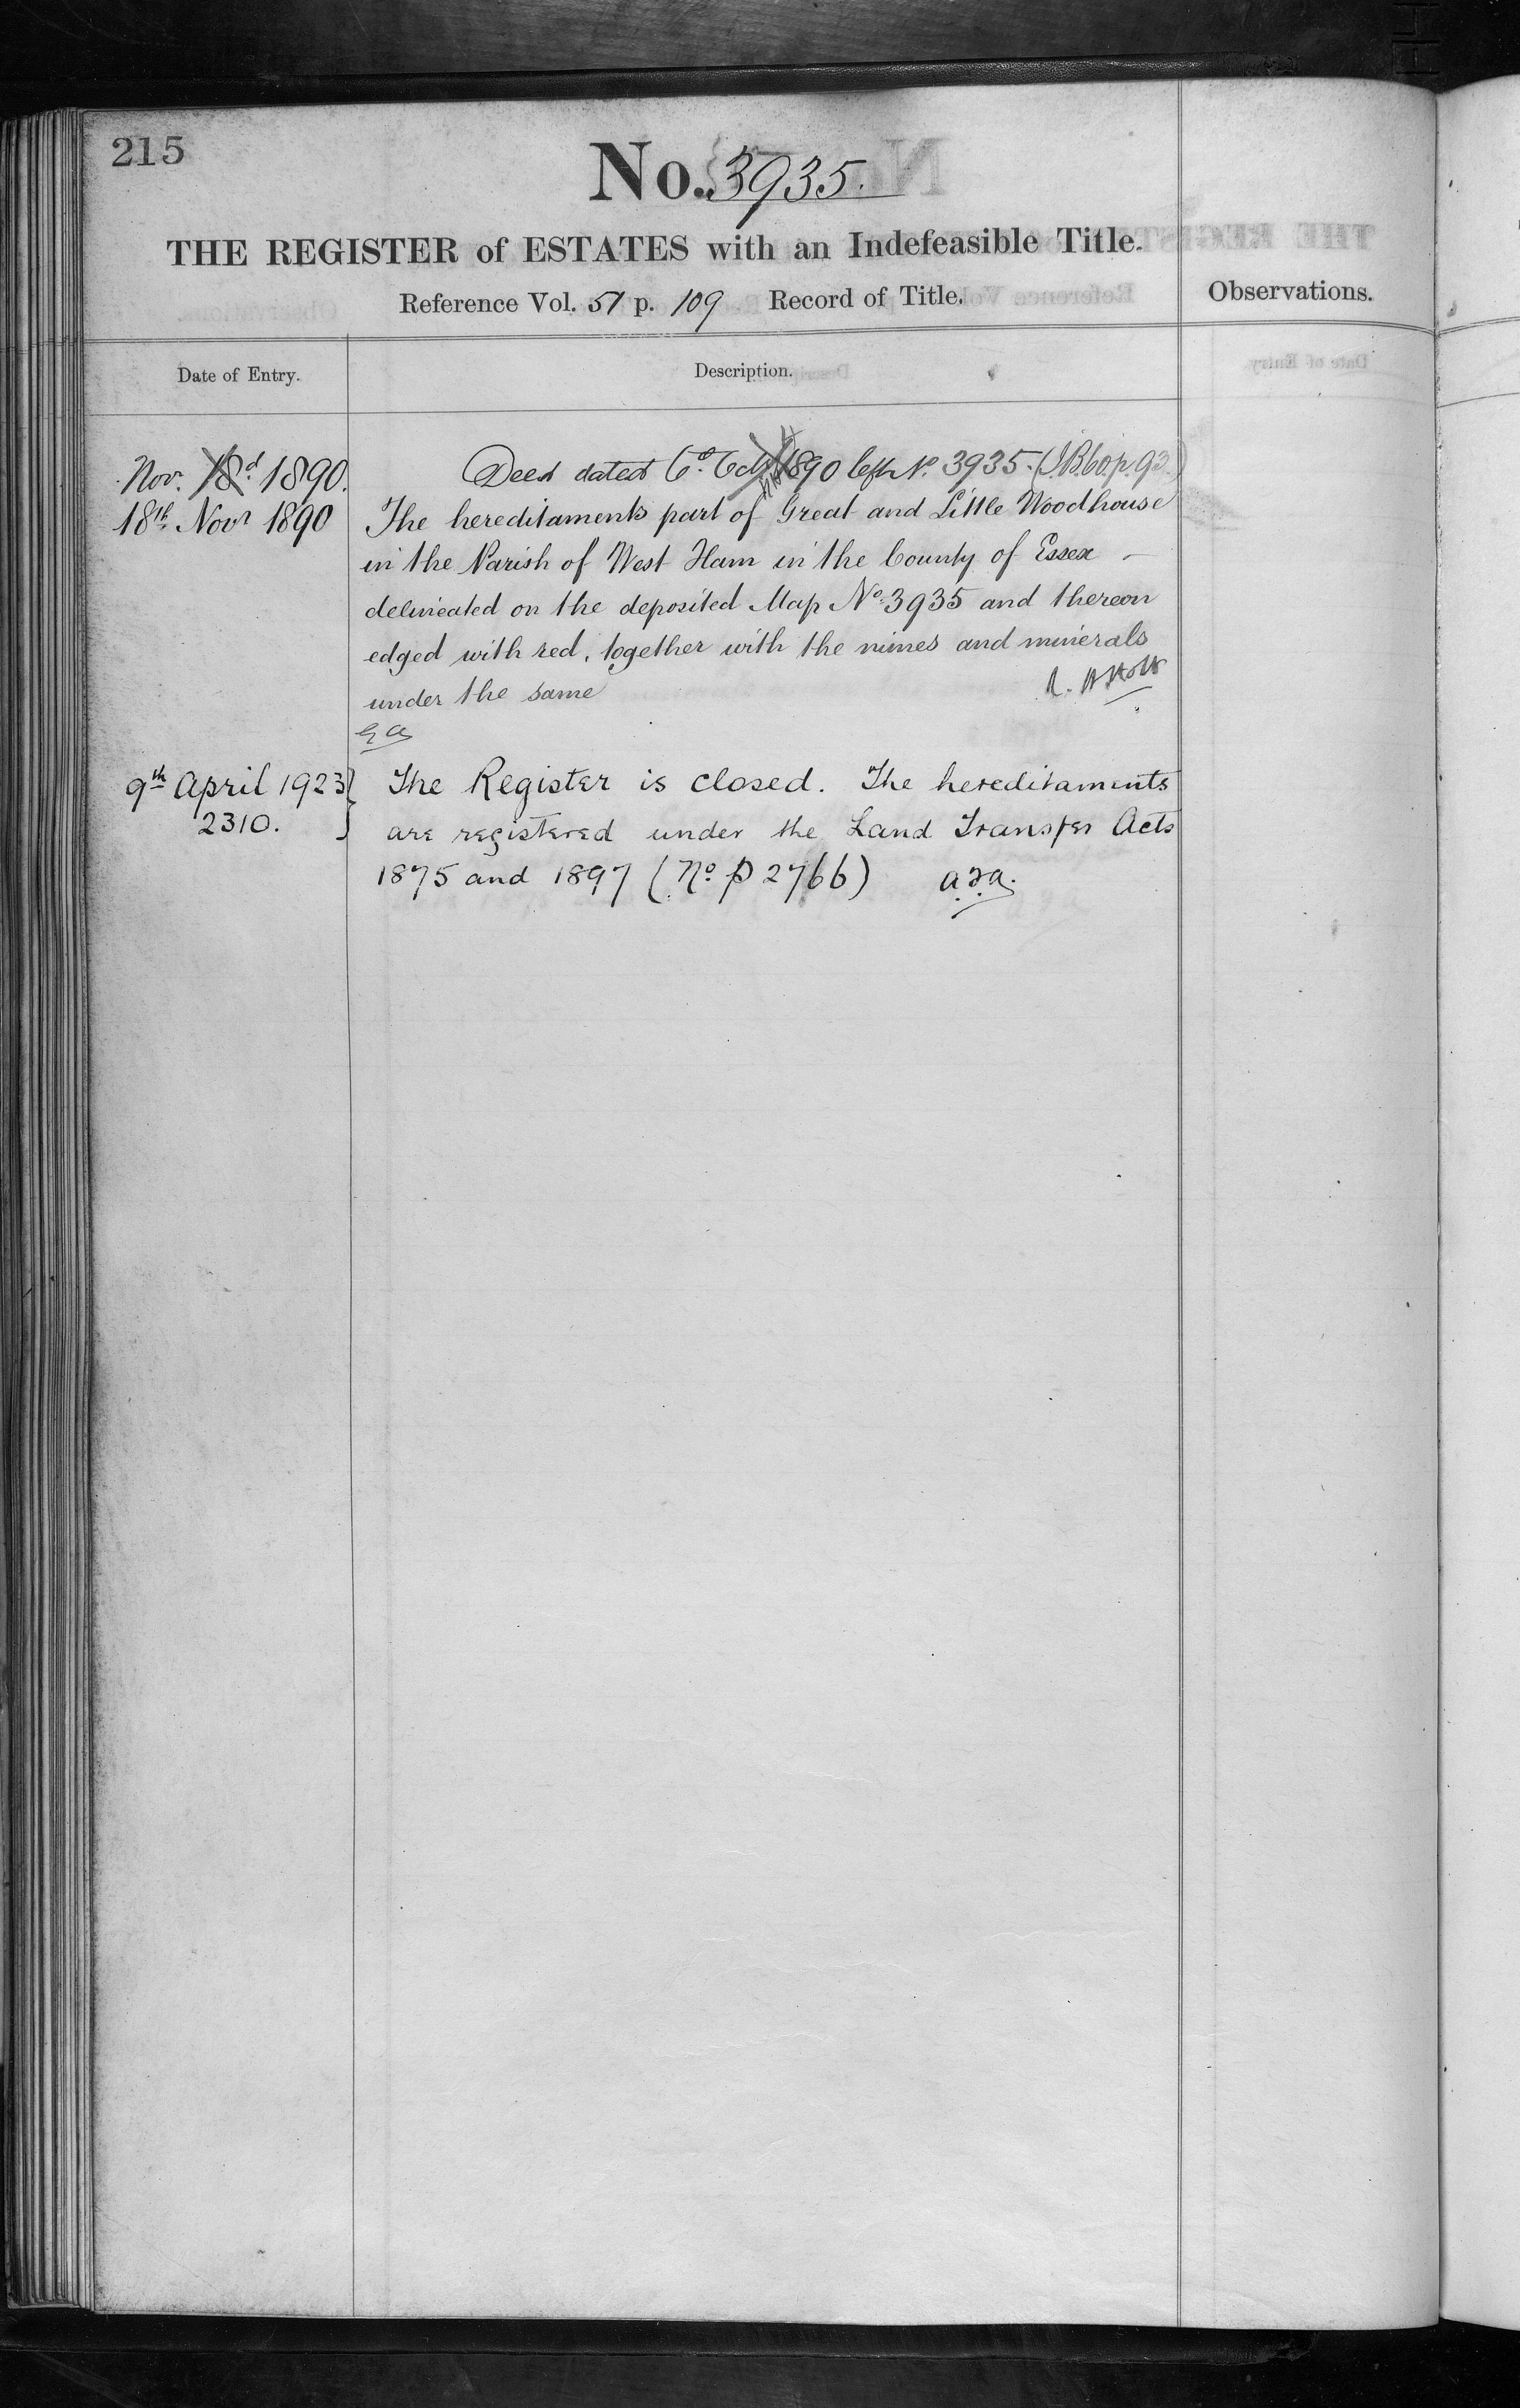 215
No. 3935.
THE REGISTER of ESTATES with an Indefeasible Title.
Reference Vol. 51 p. 109 Record of Title.
Observations.
Date of Entry.
Description.
Nov. 18d 1890.
Deed dated 1890 No. 3935. (I.B. 60. p. 93.)
18th Novr 1890
The hereditaments part of Great and Little Woodhouse
in the Parish of West Ham in the County of Essex —
delineated on the deposited Map No. 3935 and thereon
edged with red, together with the mines and minerals
under the same
9th April 1923
The Register is closed. The hereditaments
2310.
are registered under the Land Transfer Acts
1875 and 1897 (No. P 2766)